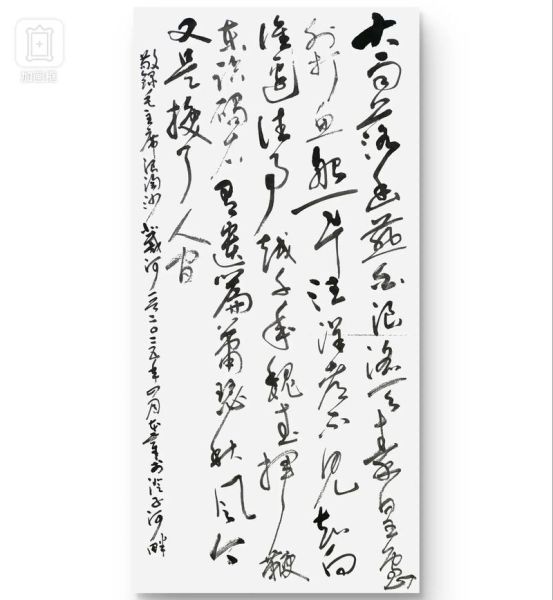 大雨落幽燕白浪滔天秦皇岛
外打鱼船一片汪洋都不见知向
谁边往事越千年魏武挥鞭
东临碣石有遗篇萧瑟秋风今
又是换了人间
敬録毛主席浪淘沙北戴河一首二〇二五年四月河畔